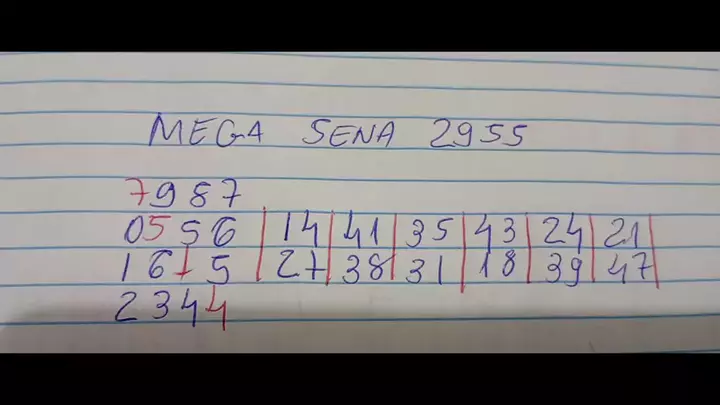 MEGA SENA 2955
7987
0556 | 14 | 41 | 35 | 43 | 24 | 21 |
1675 | 27 | 38 | 31 | 18 | 39 | 47 |
2344